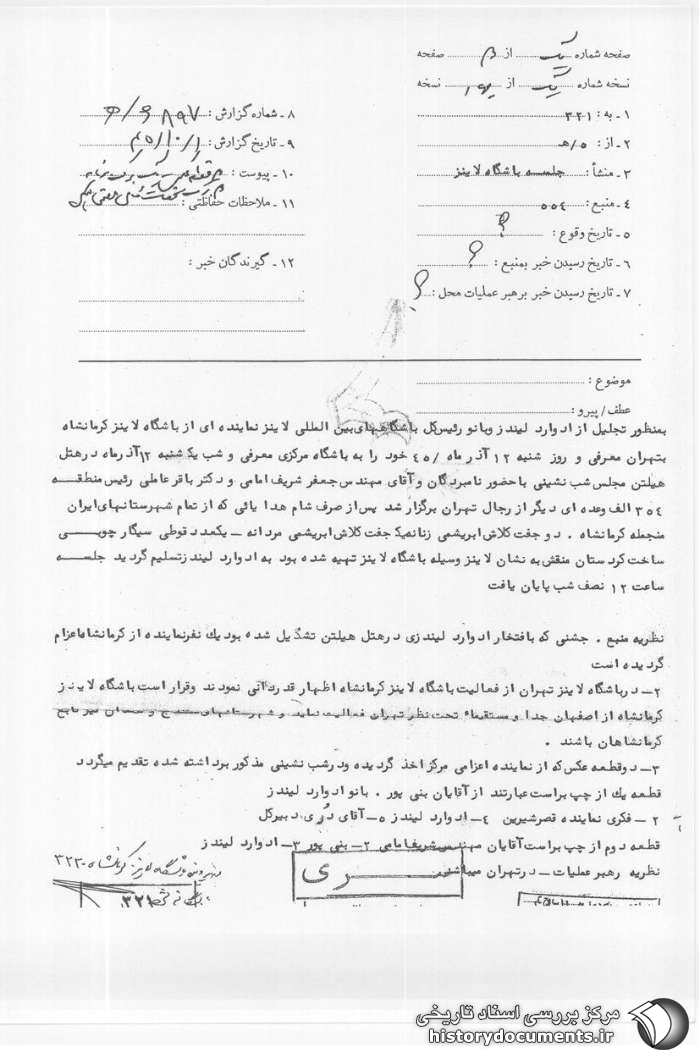 صفحه شماره یک از ۳ صفحه
نسخه شماره یک از نسخه
۱ـ به : ۳۲۱
۲ـ از : ۵/هـ
۳ـ منشأ : جلسه باشگاه لاینز
۴ـ منبع : ۵۵۴
۵ـ تاریخ وقوع : ؟
۶ـ تاریخ رسیدن خبر بمنبع : ؟
۷ـ تاریخ رسیدن خبر برهبر عملیات محل : ؟
۸ـ شماره گزارش :
۹ـ تاریخ گزارش : ۴۵/۱۰/۱
۱۰ـ پیوست :
۱۱ـ ملاحظات حفاظتی :
۱۲ـ گیرندگان خبر :
موضوع :
عطف/پیرو :
بمنظور تجلیل از ادوارد لیندز وبانو رئیس‌کل باشگاههای بین المللی لاینز نماینده ای از باشگاه لاینز کرمانشاه
بتهران معرفی و روز شنبه ۱۲ آذر ماه ۴۵/ خود را به باشگاه مرکزی معرفی و شب یکشنبه ۱۳ آذرماه درهتل
هیلتن مجلس شب نشینی با حضور نامبردگان و آقای مهندس جعفر شریف امامی و دکتر باقر عاملی رئیس منطقه
۳۵۴ الف وعده ای دیگر از رجال تهران برگزار شد پس از صرف شام هدا یائی که از تمام شهرستانهای ایران
منجمله کرمانشاه . دو جفت کلاش ابریشمی زنانه یک جفت کلاش ابریشمی مردانه ـ یکعدد قوطی سیگار چوبی
ساخت کردستان منقش به نشان لاینز وسیله باشگاه لاینز تهیه شده بود به ادوارد لیندز تسلیم گردید جلسه
ساعت ۱۲ نصف شب پایان یافت
نظریه منبع . جشنی که بافتخار ادوارد لیندزی درهتل هیلتن تشکیل شده بود یک نفرنماینده از کرمانشاه اعزام
گردیده است
۲ـ در باشگاه لاینز تهران از فعالیت باشگاه لاینز کرمانشاه اظهار قدردانی نمودند وقرار است باشگاه لاینز
کرمانشاه از اصفهان جدا و مستقیماً تحت نظر تهران فعالیت نماید و شهرستانهای سنندج و همدان نیز تابع
کرمانشاهان باشند .
۳ـ دوقطعه عکس که از نماینده اعزامی مرکز اخذ گردیده ودرشب نشینی مذکور برداشته شده تقدیم میگردد
قطعه یک از چپ براست عبارتند از آقایان بنی پور . بانو ادوارد لیندز
۲ ـ فکری نماینده قصرشیرین ۴ـ ادوارد لیندز ۵ـ آقای دبیرکل
قطعه دوم از چپ براست آقایان مهندس شریف امامی ۲ـ بنی پور ۳ـ ادوارد لیندز
نظریه رهبر عملیات ـ درتهران میباشد
سری
۳۲۱
مرکز بررسی اسناد تاریخی
historydocuments.ir